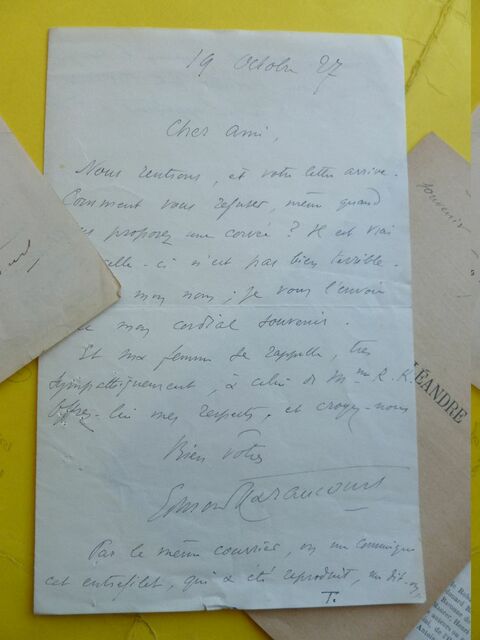 19 Octobre 27
Cher ami,
Nous rentrons, et votre lettre arrive.
Comment vous refuser, même quand
proposez une corvée ? Il est vrai
elle-ci n'est pas bien terrible.
mon nom ; je vous l'envoie
mon cordial souvenir.
Et ma femme se rappelle, très
sympathiquement, à celui de Mme R. K.
Offrez-lui mes respects, et croyez-nous
Bien vôtres
Edmond Haraucourt
Par le même courrier, on me communique
cet entrefilet, qui a été reproduit, me dit-on,
T.
souvenir
LÉANDRE